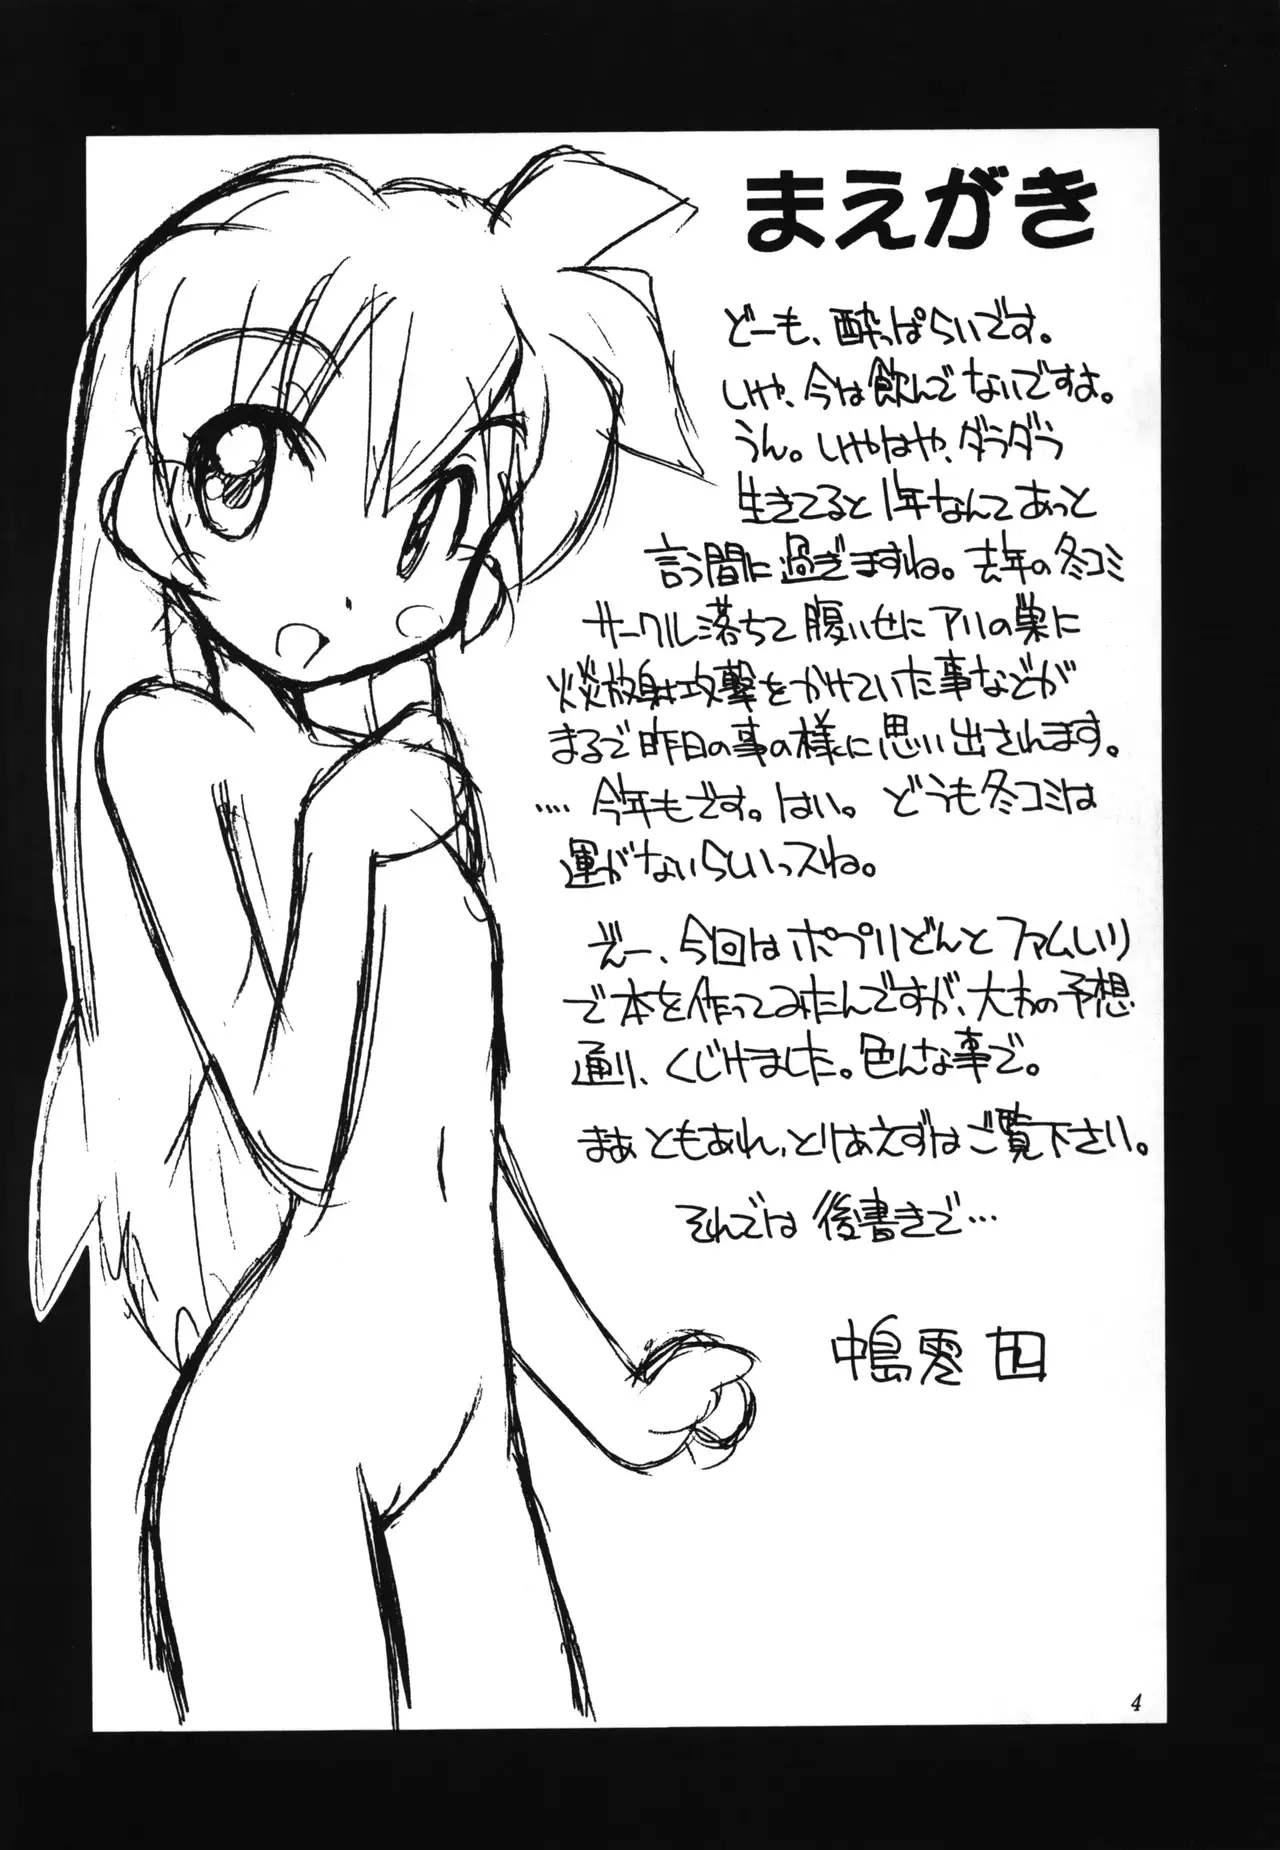 まえがき
どーも、酔っぱらいです。
いや、今は飲んでないですよ。
うん。いやはや、ダラダラ
生きてると1年なんてあっと
言う間に過ぎますね。去年の冬コミ
サークル落ちて腹いせにアリの巣に
火炎放射攻撃をかけていた事などが
まるで昨日の事の様に思い出されます。
‥‥今年もです。はい。どうも冬コミは
運がないらしいっスね。
でー、今回はポプリどんとファムしりり
で本を作ってみたんですが、大方の予想
通り、くじけました。色んな事で。
まぁともあれ、とりあえずはご覧下さい。
それでは後書きで…
中島零
4